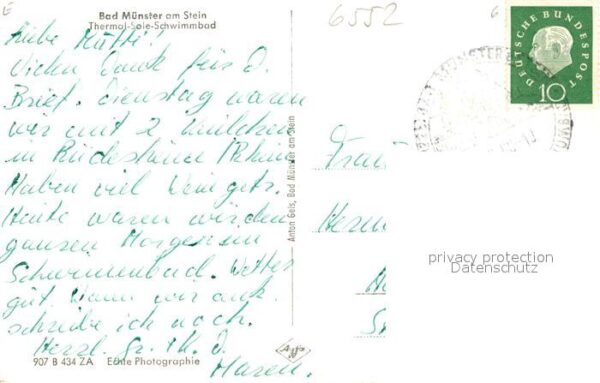 E
6552
6
Bad Münster am Stein
Thermal-Sole-Schwimmbad
Liebe Mutti!
Vielen Dank für d.
Brief. Dienstag waren
wir mit 2
in Rüdesheim / Rhein
Haben viel Wein getr.
Heute waren wir den
ganzen Morgen im
Schwimmbad. Wetter
gut. Wann wir
schreibe ich noch.
Herzl. Gr. + K. d.
Maren.
907 B 434 ZA Echte Photographie
Anton Geis, Bad Münster am Stein
Agfa
DEUTSCHE BUNDESPOST
10
BAD MÜNSTER
Frau
Herm
privacy protection
Datenschutz